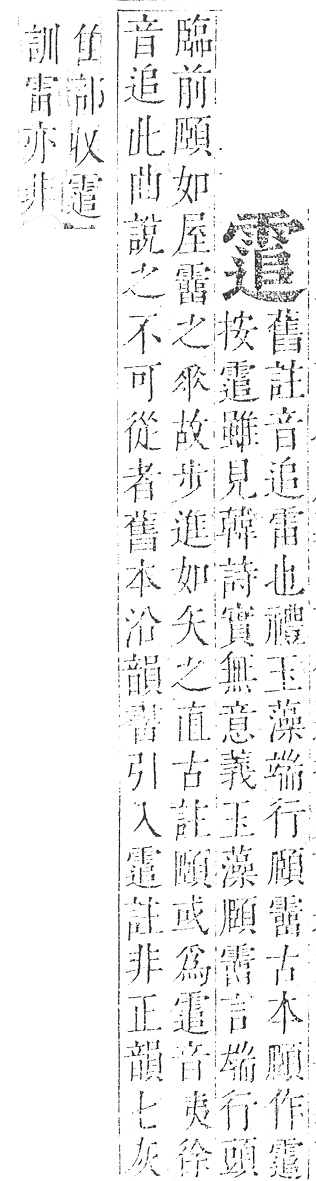 䨨
舊註音追雷也禮玉藻端行頤霤古本頤作䨨
按䨨雖見韓詩實無意義玉藻頤霤言端行頭
臨前頤如屋霤之垂故步進如矢之直古註頤或爲䨨音夷徐
音追此曲說之不可從者舊本沿韻書引入䨨註非正韻七灰
隹部收䨨
訓雷亦非